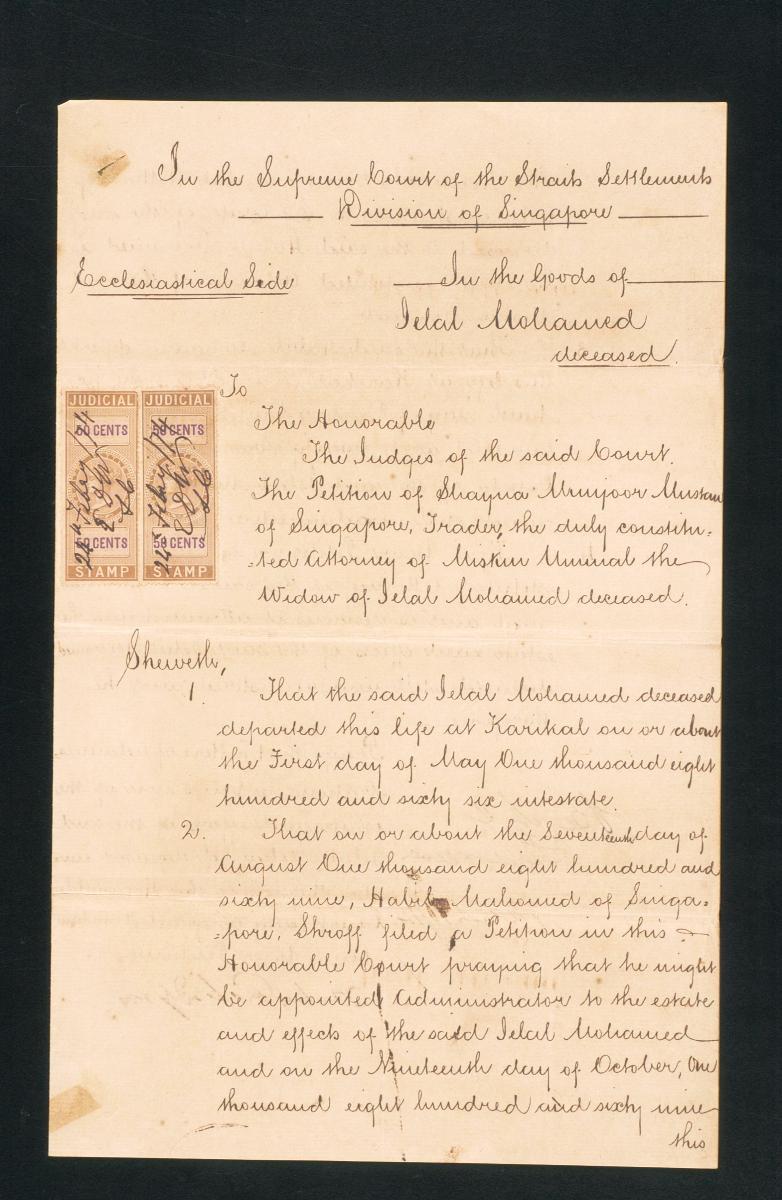 In the Supreme Court of the Straits Settlements
Division of Singapore
Ecclesiastical Side
In the Goods of
Jelal Mohamed
deceased.
JUDICIAL
50 CENTS
50 CENTS
STAMP
JUDICIAL
50 CENTS
50 CENTS
STAMP
24th Feby/74
24th Feby/74
To
The Honorable
The Judges of the said Court.
The Petition of Shayna Munjoor Mustan
of Singapore, Trader, the duly constitu=
=ted Attorney of Miskin Ummal the
Widow of Jelal Mohamed deceased.
Sheweth,
1. That the said Jelal Mohamed deceased
departed this life at Karikal on or about
the First day of May One thousand eight
hundred and sixty six intestate.
2. That on or about the Seventeenth day of
August One thousand eight hundred and
sixty nine, Habib Mahomed of Singa=
=pore, Shroff filed a Petition in this
Honorable Court praying that he might
be appointed Administrator to the estate
and effects of the said Jelal Mohamed
and on the Nineteenth day of October, One
thousand eight hundred and sixty nine
this